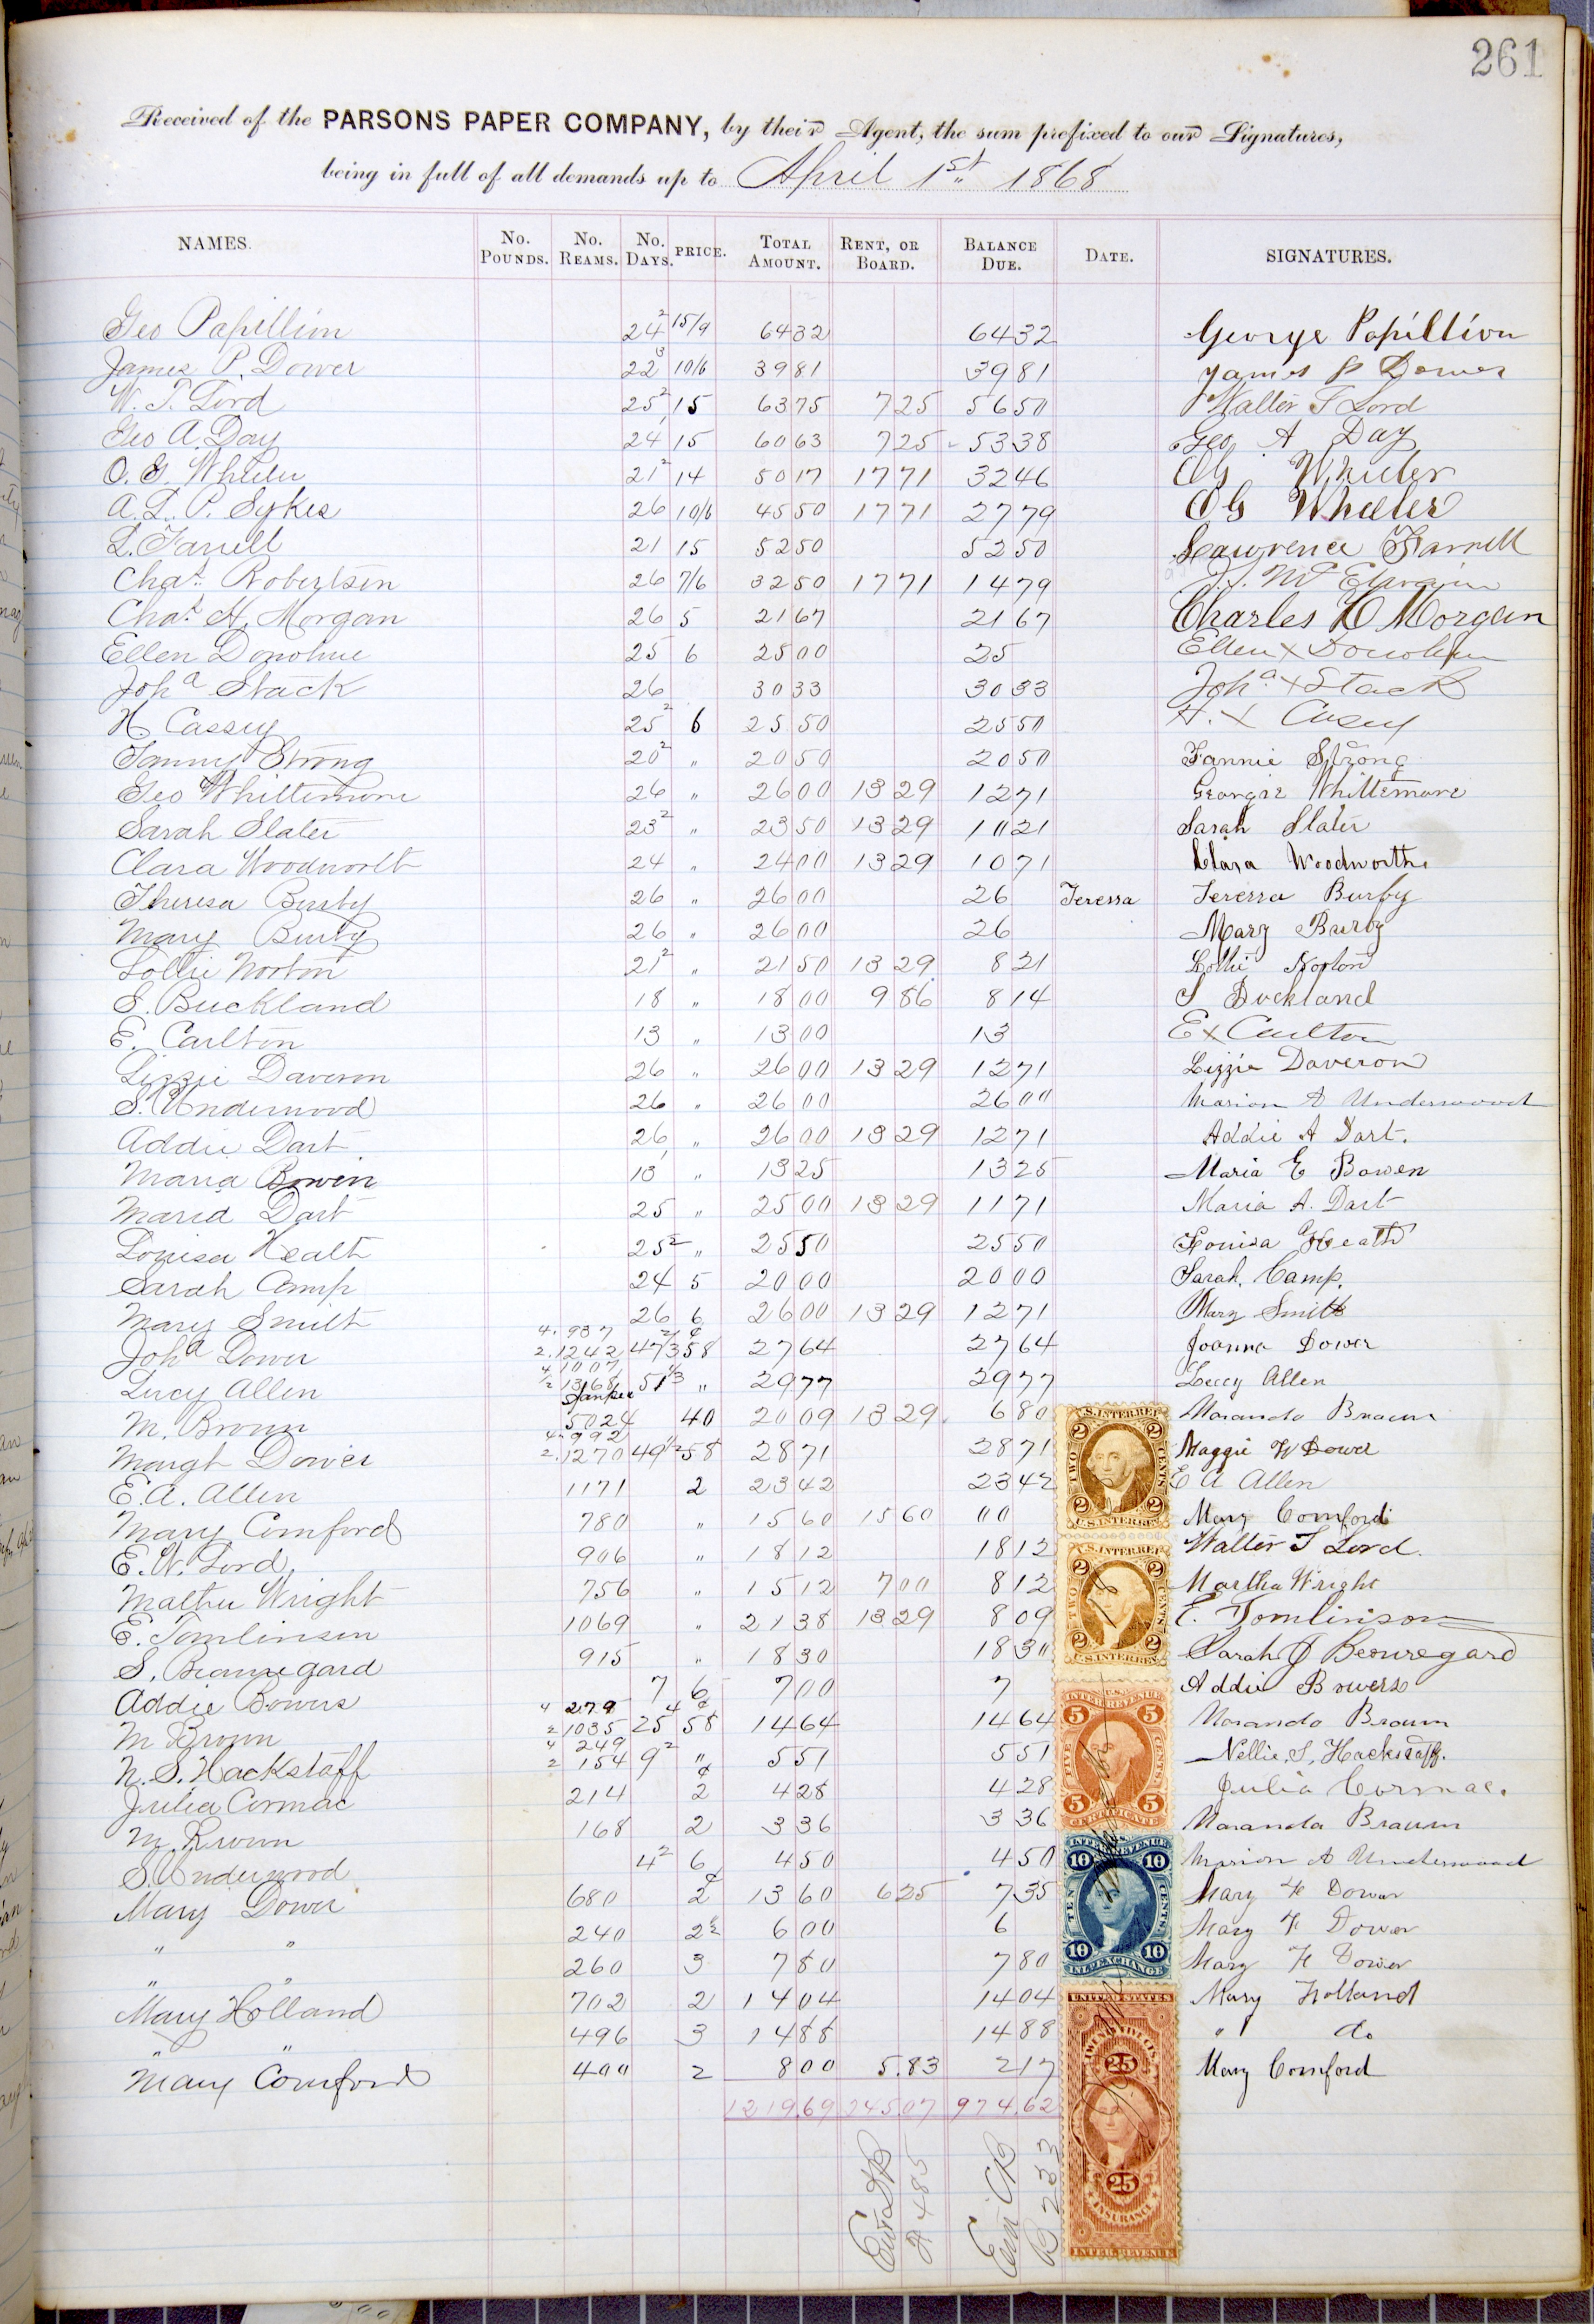 261
Received of the PARSONS PAPER COMPANY, by their Agent, the sum prefixed to our Signatures,
being in full of all demands up to April 1st 1868
NAMES. No. POUNDS. No. REAMS. No. DAYS. PRICE. TOTAL AMOUNT. RENT, OR BOARD. BALANCE DUE. DATE. SIGNATURES.
Geo Papillion 24 2 15/9 64 32 64 32 George Papillion
James P. Dower 22 3 10/6 39 81 39 81 James P Dower
W. T. Lord 25 2 15 63 75 7 25 56 50 Walter T Lord
Geo A. Day 24 1 15 60 63 7 25 53 38 Geo A Day
O. G. Wheeler 21 2 14 50 17 17 71 32 46 O G Wheeler
A. L. P. Sykes 26 10/6 45 50 17 71 27 79 O G Wheeler
L. Farrell 21 15 52 50 52 50 Lawrence Farrell
Chas. Robertson 26 7/6 32 50 17 71 14 79
Chas. H. Morgan 26 5 21 67 21 67 Charles H Morgan
Ellen Donohue 25 6 25 00 25 Ellen X Donohue
Joha Stack 26 30 33 30 33 Joha X Stack
H Cassey 25 2 6 25 50 25 50 H. X Casey
Fanny Strong 20 2 " 20 50 20 50 Fannie Strong
Geo Whittemore 26 " 26 00 13 29 12 71 Georgie Whittemore
Sarah Slater 23 2 " 23 50 13 29 10 21 Sarah Slater
Clara Woodworth 24 " 24 00 13 29 10 71 Clara Woodworth
Theresa Busby 26 " 26 00 26 Teressa Teressa Busby
Mary Busby 26 " 26 00 26 Mary Busby
Lottie Norton 21 2 " 21 50 13 29 8 21 Lottie Norton
S. Buckland 18 " 18 00 9 86 8 14 S Buckland
E. Carlton 13 " 13 00 13 E X Carlton
Lizzie Daveron 26 " 26 00 13 29 12 71 Lizzie Daveron
S. Underwood 26 " 26 00 26 00 Marion A Underwood
Addie Dart 26 " 26 00 13 29 12 71 Addie A Dart.
Maria Bowen 13 1 " 13 25 13 25 Maria E Bowen
Maria Dart 25 " 25 00 13 29 11 71 Maria A. Dart
Louisa Heath 25 2 " 25 50 25 50 Louisa A Heath
Sarah Camp 24 5 20 00 20 00 Sarah. Camp.
Mary Smith 26 6 26 00 13 29 12 71 Mary Smith
Joha Dower 4. 937 2. 1242 47 2/3 58 27 64 27 64 Joanna Dower
Lucy Allen 4 1007 2 1368 51 1/3 " 29 77 29 77 Lucy Allen
M. Brown 5024 40 20 09 13 29 6 80 Maranda Brown
Margt Dower 4. 992 2. 1270 49 1/2 58 28 71 28 71 Maggie W Dower
E. A. Allen 1171 2 23 42 23 42 E A Allen
Mary Comford 780 " 15 60 15 60 00 Mary Comford
E. W. Lord 906 " 18 12 18 12 Walter T Lord.
Martha Wright 756 " 15 12 7 00 8 12 Martha Wright
E. Tomlinson 1069 " 21 38 13 29 8 09 E. Tomlinson
S. Beauregard 915 " 18 30 18 30 Sarah J Beauregard
Addie Bowers 7 6 7 00 7 Addie Bowers
M Brown 4 279 2 1035 25 4 58 14 64 14 64 Maranda Brown
N. S. Hackstaff 4 249 2 154 9 2 " 5 51 5 51 Nellie. S. Hackstaff.
Julia Cormac 214 2 4 28 4 28 Julia Cormac.
M. Brown 168 2 3 36 3 36 Maranda Brown
S. Underwood 4 2 6 4 50 4 50 Marion A Underwood
Mary Dower 680 2 13 60 6 25 7 35 Mary F Dower
" " 240 2 1/2 6 00 6 Mary F Dower
" " 260 3 7 80 7 80 Mary F Dower
Mary Holland 702 2 14 04 14 04 Mary Holland
" " 496 3 14 88 14 88 " do
Mary Comford 400 2 8 00 5.83 2 17 Mary Comford
1219.69 245.07 974.62
Ent CB
B 233
U.S. INTER. REV.
2 TWO CENTS 2
U.S. INTER. REV.
2 TWO CENTS 2
INTER. REVENUE
5 FIVE CENTS 5
CERTIFICATE
INTER. REVENUE
10 TEN CENTS 10
INL. EXCHANGE
UNITED STATES
TWENTY FIVE CTS.
25
25
INSURANCE
INTER. REVENUE